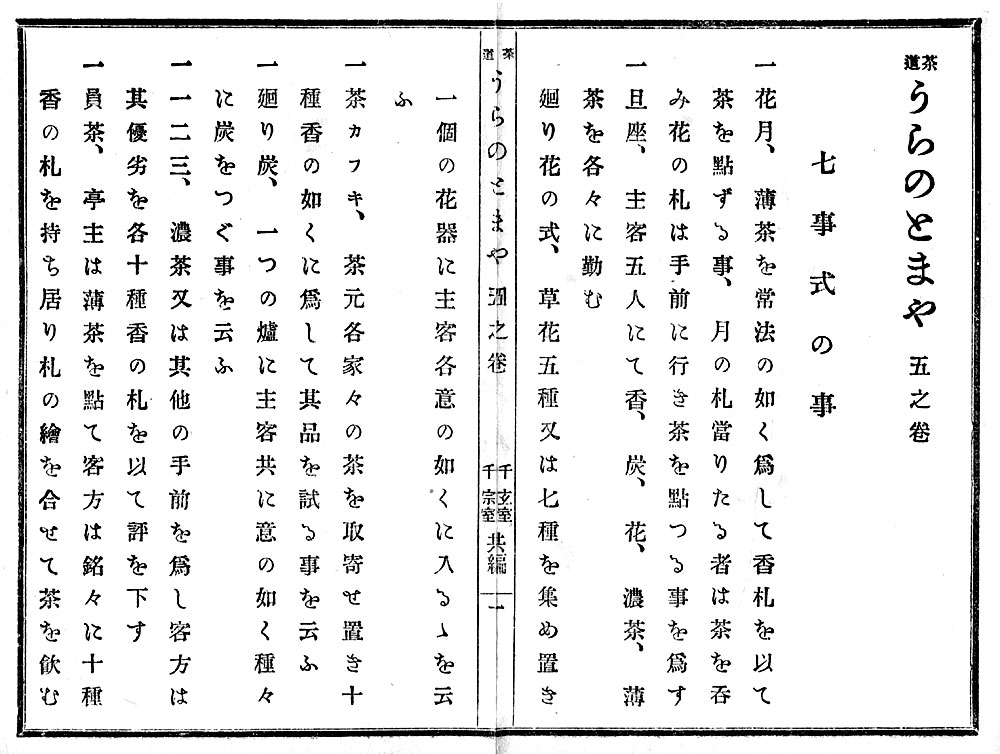 茶道うらのとまや 五之卷
七事式の事
一花月、薄茶を常法の如く爲して香札を以て
茶を點ずる事、月の札當りたる者は茶を呑
み花の札は手前に行き茶を點つる事を爲す
一旦座、主客五人にて香、炭、花、濃茶、薄
茶を各々に勤む
廻り花の式、草花五種又は七種を集め置き
茶道うらのとまや 五之卷 千玄室千宗室共編 一
一個の花器に主客各意の如くに入るゝを云
ふ
一茶カフキ、茶元各家々の茶を取寄せ置き十
種香の如くに爲して其品を試る事を云ふ
一廻り炭、一つの爐に主客共に意の如く種々
に炭をつぐ事を云ふ
一一二三、濃茶又は其他の手前を爲し客方は
其優劣を各十種香の札を以て評を下す
一員茶、亭主は薄茶を點て客方は銘々に十種
香の札を持ち居り札の繪を合せて茶を飮む